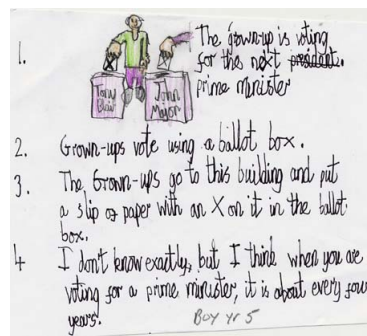 1. The grown-up is voting
for the next president.
prime minister
Tony
Blair
John
Major
2. Grown-ups vote using a ballot box.
3. The Grown-ups go to this building and put
a slip of paper with an X on it in the ballot
box.
4 I don't know exactly, but I think when you are
voting for a prime minuster, it is about every four
years.
Boy yr 5